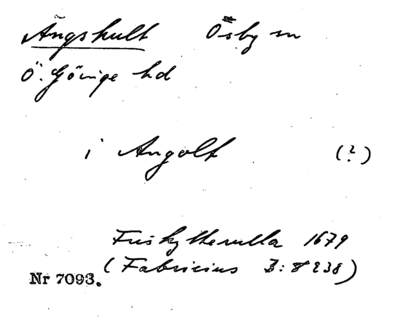 Ängshult Osby sn
Ö. Göinge hd
i Angolt (?)
Friskytterulla 1679
(Fabricius 3: 238)
Nr 7093.